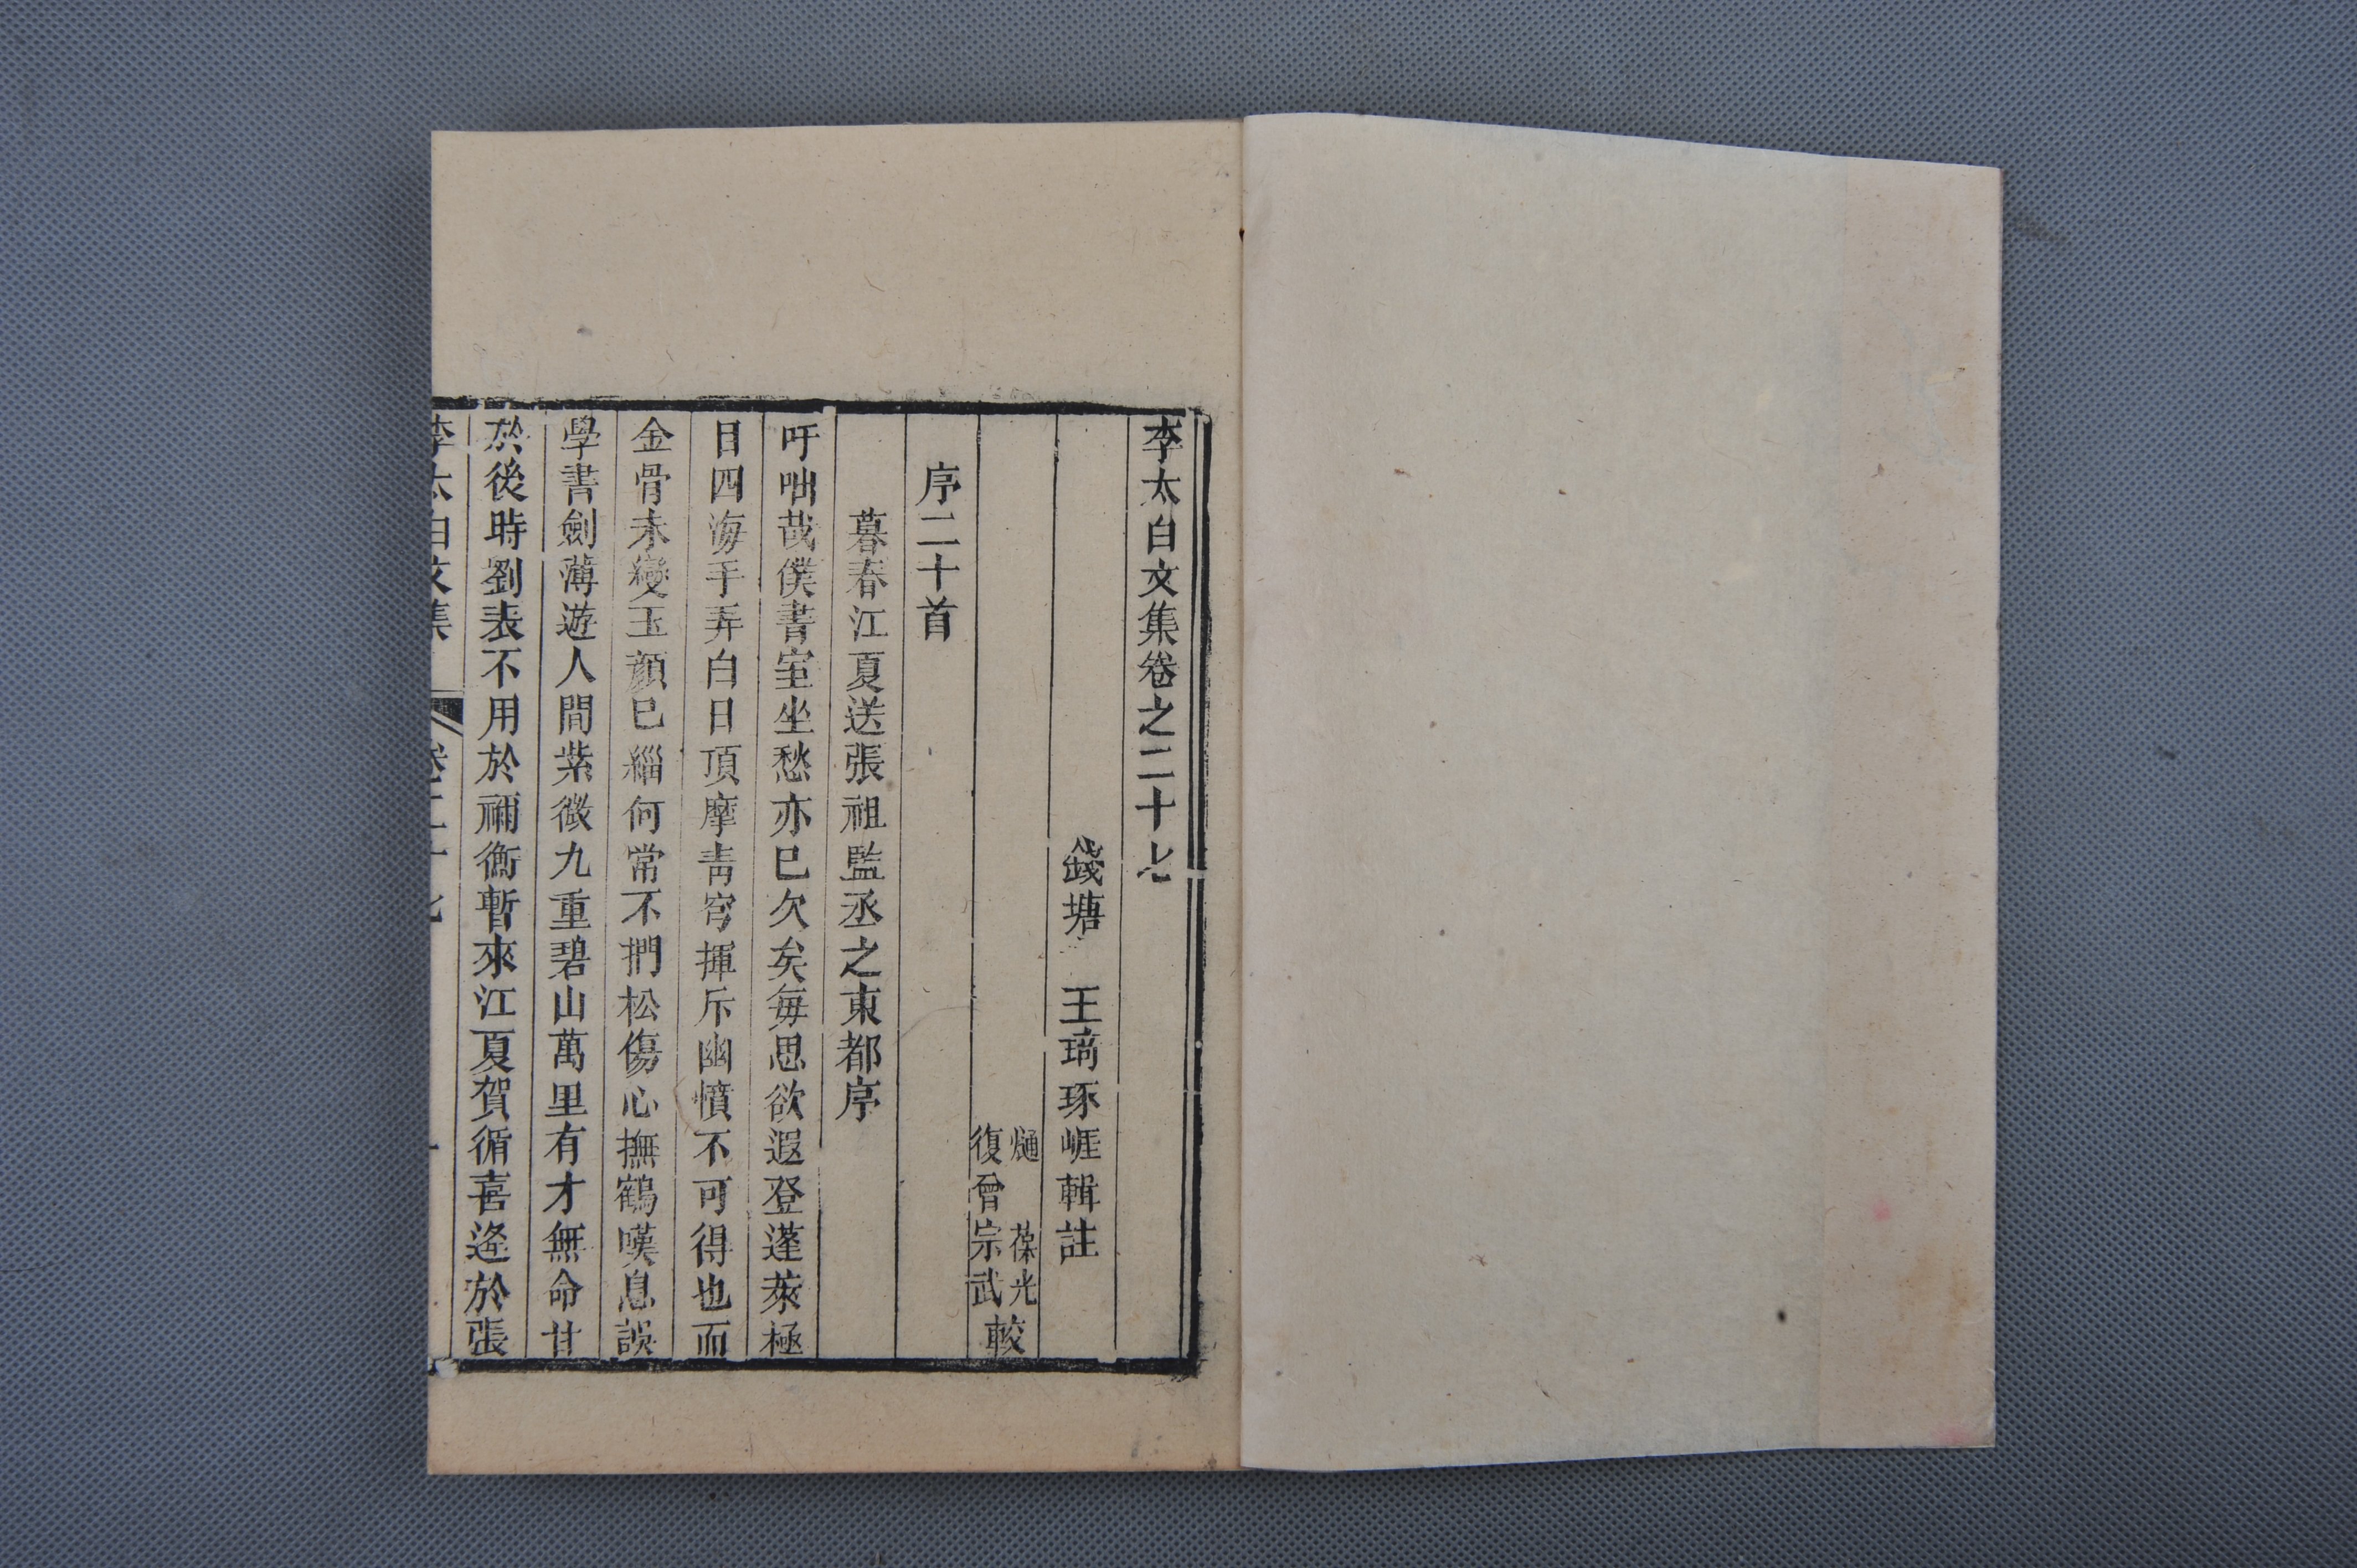 李太白文集卷之二十七
錢塘 王琦琢崕輯註
葆光
復曾宗武較
序二十首
暮春江夏送張祖監丞之東都序
吁咄哉僕書室坐愁亦已久矣每思欲遐登蓬萊極
目四海手弄白日頂摩靑穹揮斥幽憤不可得也而
金骨未變玉顏已緇何常不捫松傷心撫鶴嘆息誤
學書劍薄遊人間紫微九重碧山萬里有才無命甘
於後時劉表不用於禰衡暫來江夏賀循喜逢於張
李太白文集 卷二十七 一